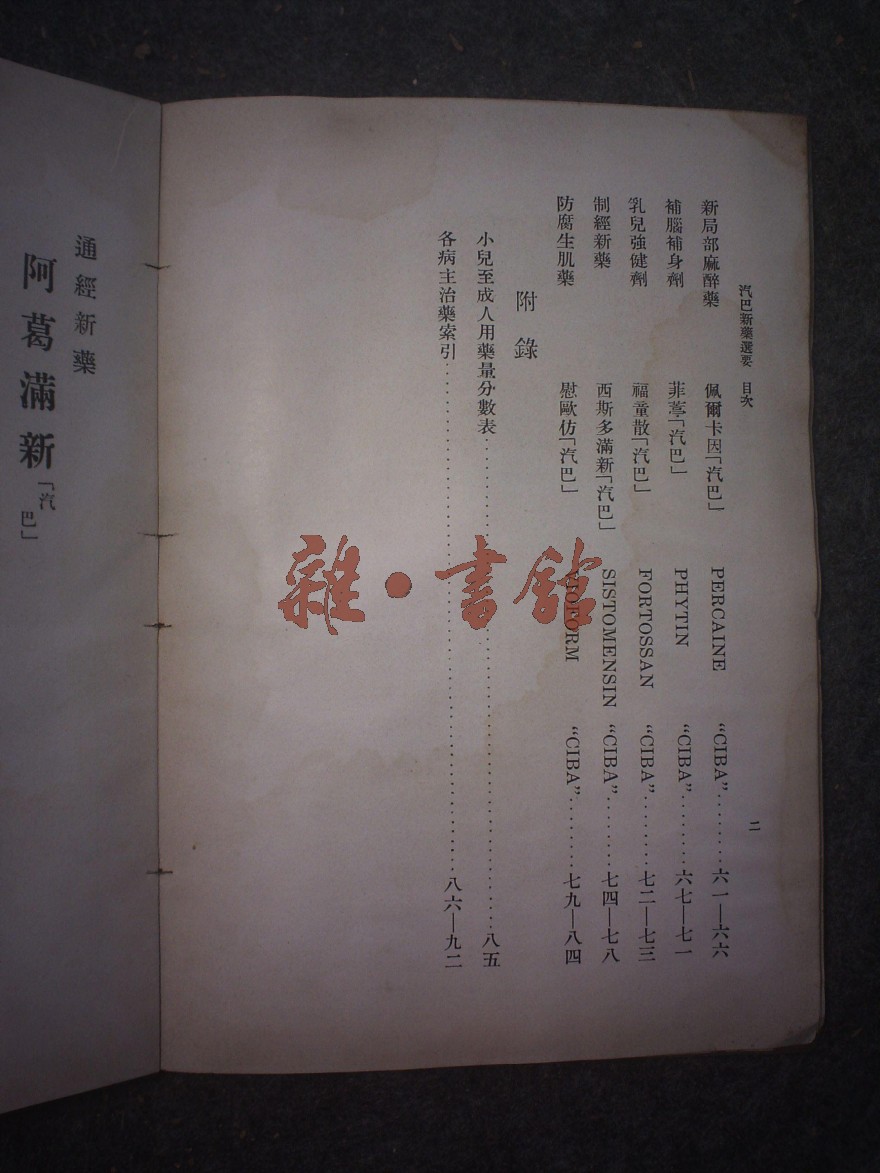 汽巴新藥選要 目次 二
新局部麻醉藥 佩爾卡因「汽巴」 PERCAINE “CIBA”........六一—六六
補腦補身劑 菲葦「汽巴」 PHYTIN “CIBA”........六七—七一
乳兒強健劑 福童散「汽巴」 FORTOSSAN “CIBA”........七二—七三
制經新藥 西斯多滿新「汽巴」 SISTOMENSIN “CIBA”........七四—七八
防腐生肌藥 慰歐仿「汽巴」 VIOFORM “CIBA”........七九—八四
附錄
小兒至成人用藥量分數表........八五
各病主治藥索引........八六—九二
通經新藥
阿葛滿新「汽巴」
雜·書館